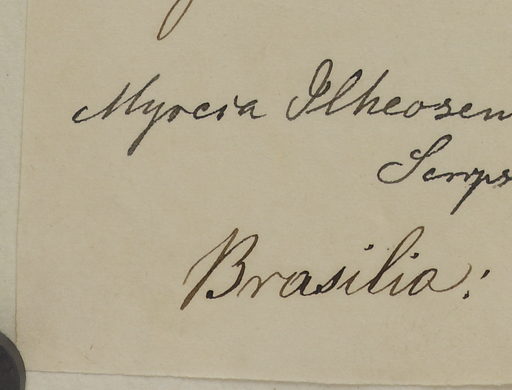 Myrcia Ilheosen
Scrips
Brasilia: